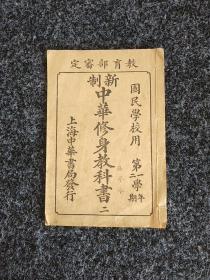 教育部審定
國民學校用
第一學年
第二學期
新制
中華修身教科書 二
上海中華書局發行